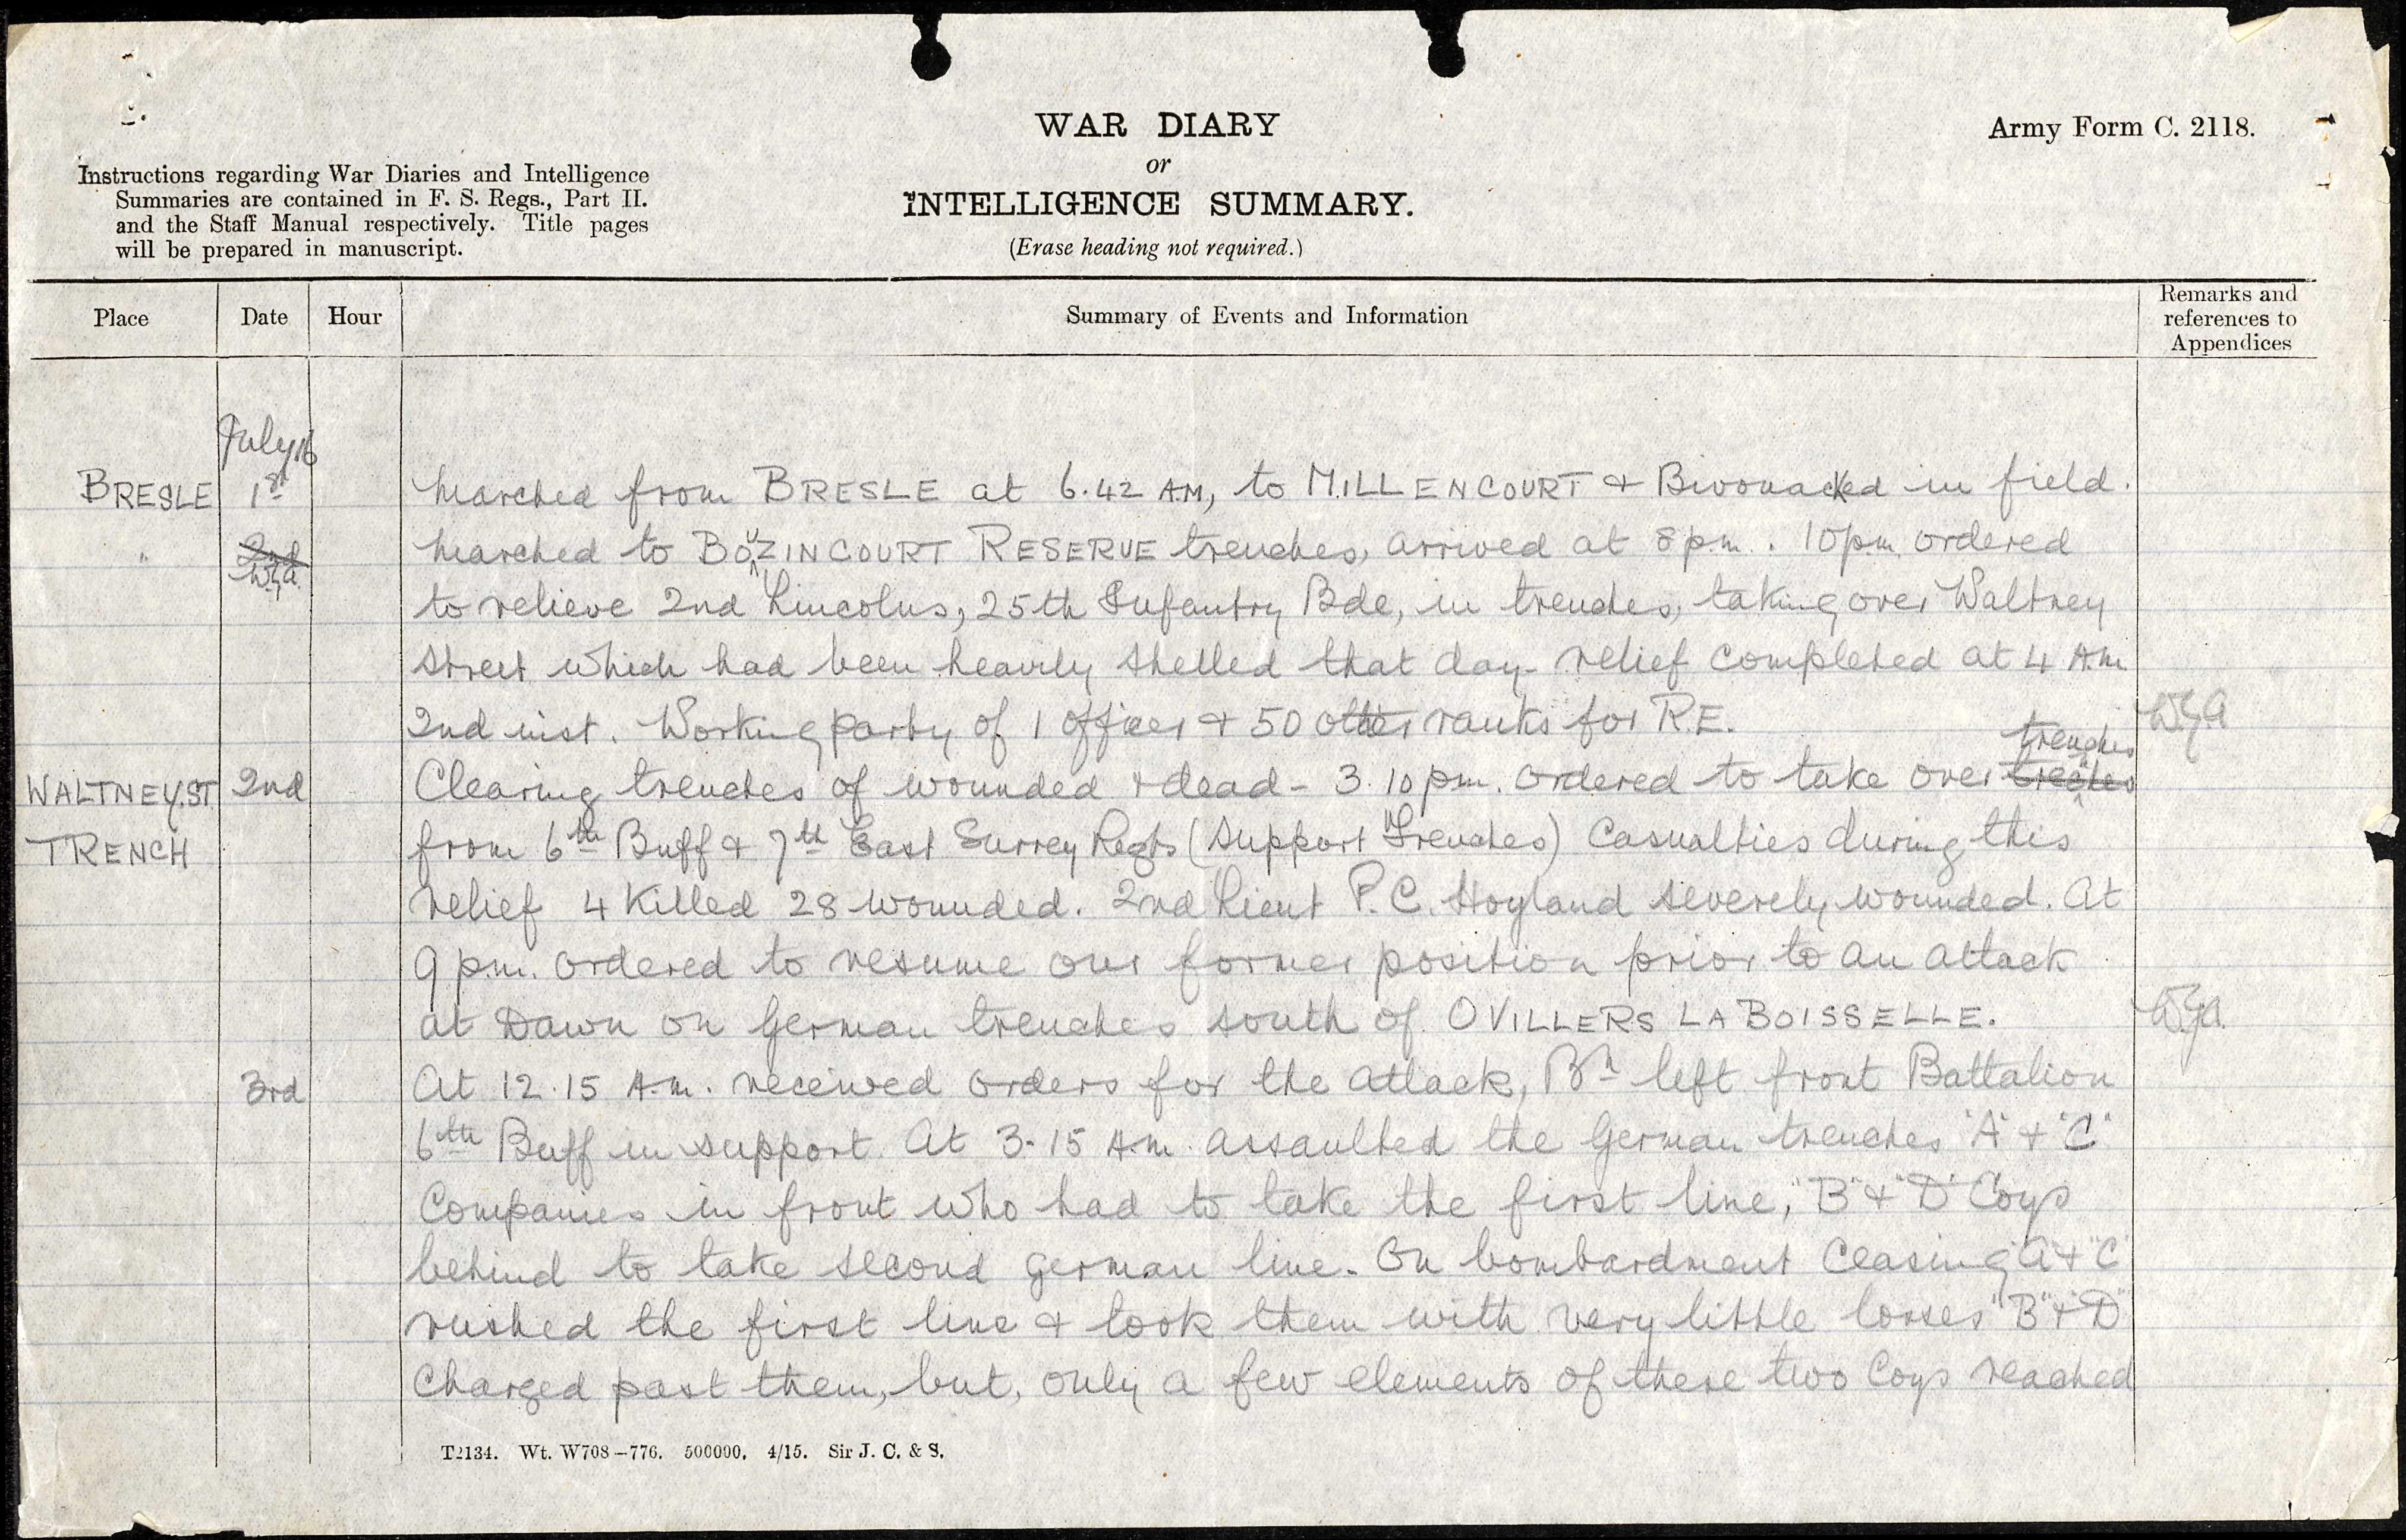 WAR DIARY
or
INTELLIGENCE SUMMARY.
(Erase heading not required.)
Army Form C. 2118.
Instructions regarding War Diaries and Intelligence
Summaries are contained in F. S. Regs., Part II.
and the Staff Manual respectively. Title pages
will be prepared in manuscript.
Place Date Hour Summary of Events and Information Remarks and references to Appendices
July 16
BRESLE 1st Marched from BRESLE at 6.42 AM, to MILLENCOURT & Bivouacked in field.
" 2nd Marched to BOUZINCOURT RESERVE trenches, arrived at 8 p.m. 10 pm ordered
to relieve 2nd Lincolns, 25th Infantry Bde, in trenches, taking over Waltney
Street which had been heavily shelled that day - relief completed at 4 A.m.
2nd inst. Working party of 1 officer & 50 other ranks for R.E. W.G.A
trenches
WALTNEY.ST 2nd Clearing trenches of wounded & dead - 3.10 pm. ordered to take over treches
TRENCH from 6th Buff & 7th East Surrey Regts (Support Trenches) Casualties during this
relief 4 Killed 28 wounded. 2nd Lieut P.C. Hoyland severely wounded. At
9 p.m. ordered to resume our former position prior to an attack
at Dawn on German trenches south of OVILLERS LA BOISSELLE. W.G.A.
3rd At 12.15 A.m. received orders for the attack, Bn left front Battalion
6th Buff in support. At 3-15 A.m. assaulted the German trenches "A" & "C"
Companies in front who had to take the first line, "B" & "D" Coys
behind to take second German line. On bombardment Ceasing "A" & "C"
rushed the first line & took them with very little losses "B" & "D"
Charged past them, but, only a few elements of these two Coys reached
T2134. Wt. W708-776. 500000. 4/15. Sir J. C. & S.